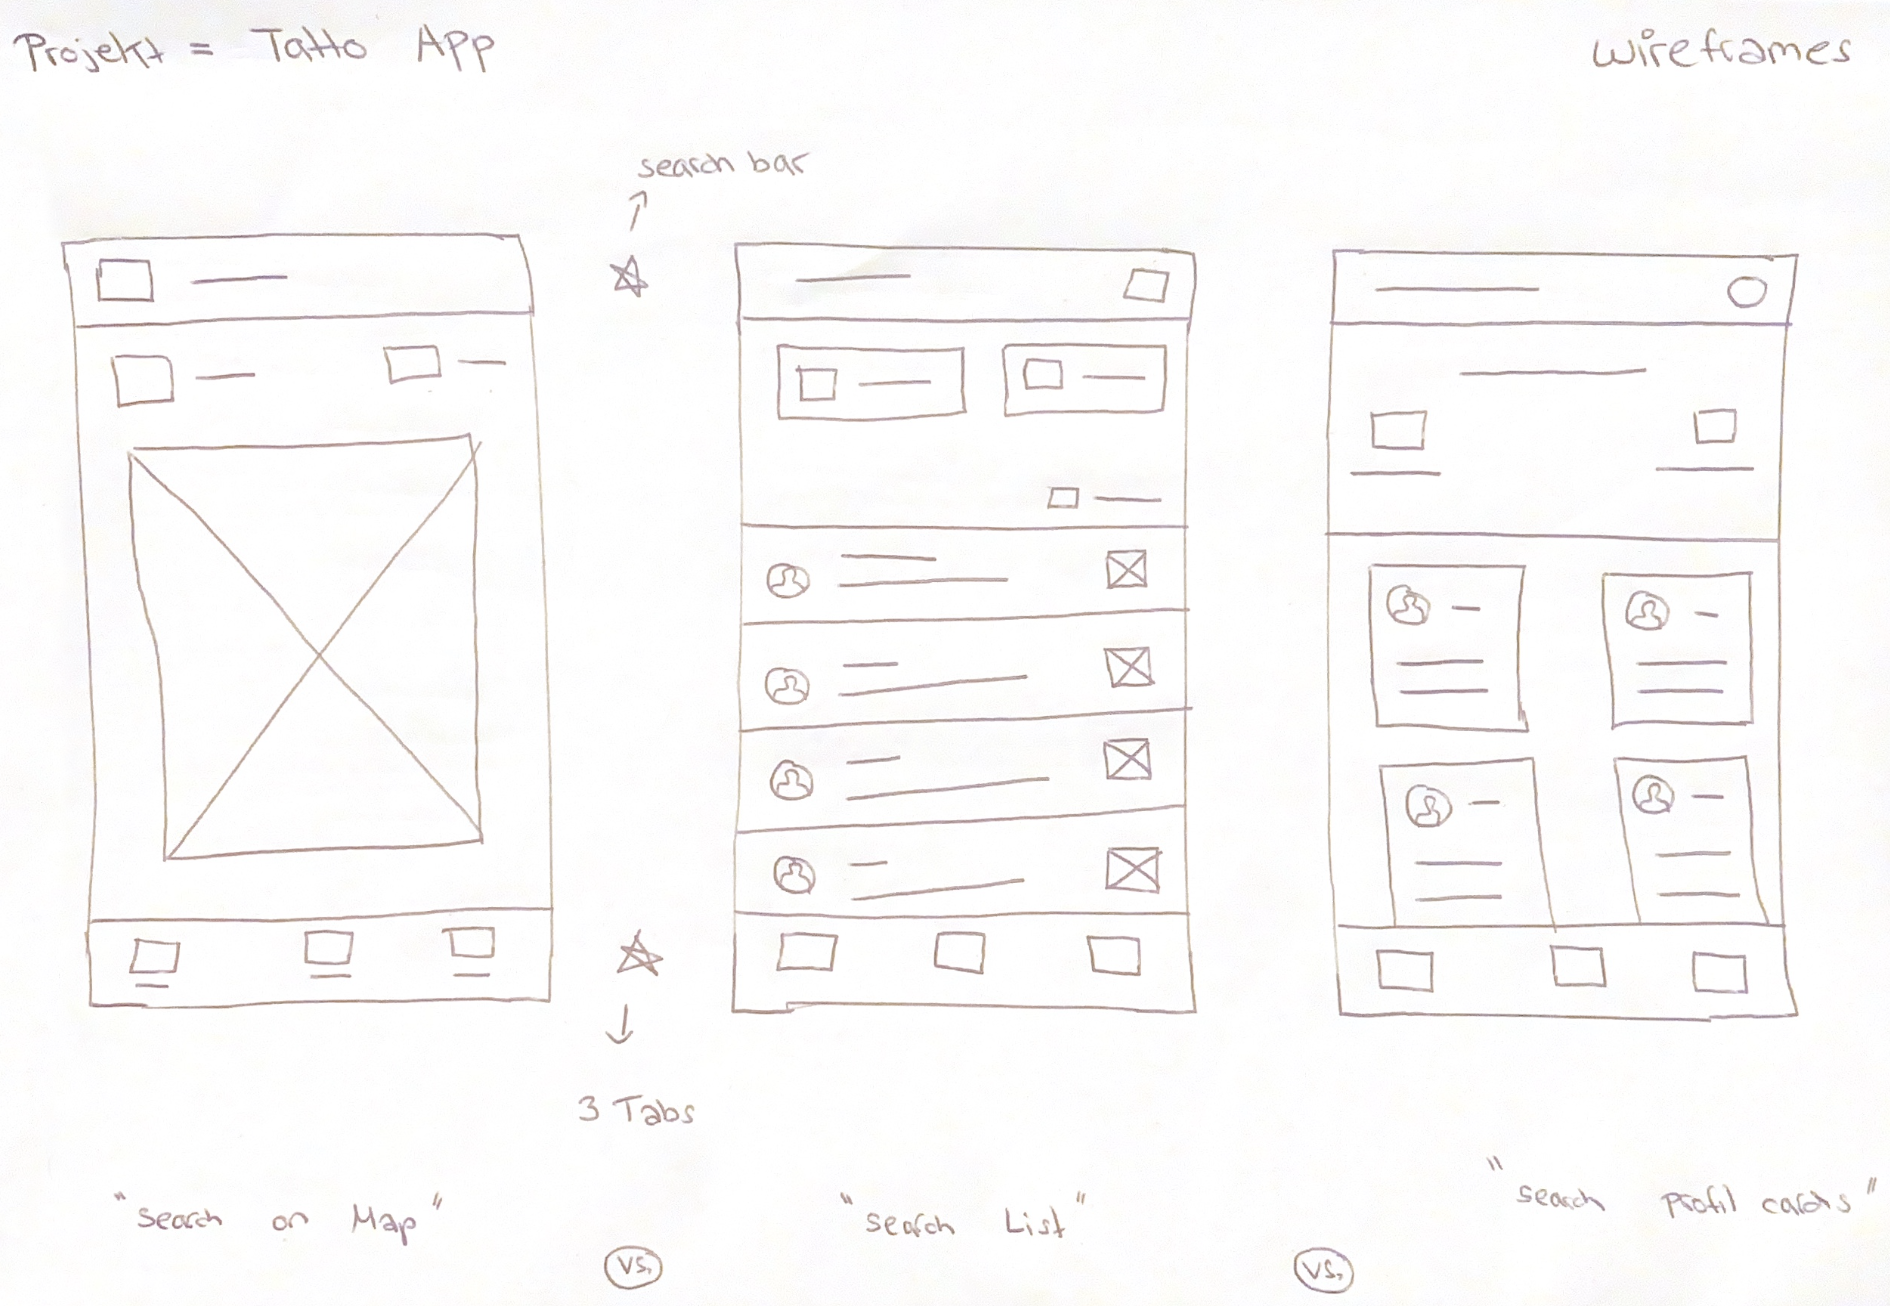 Projekt = Tatto App
wireframes
search bar
3 Tabs
"search on Map"
vs.
"search List"
vs.
"search profil cards"